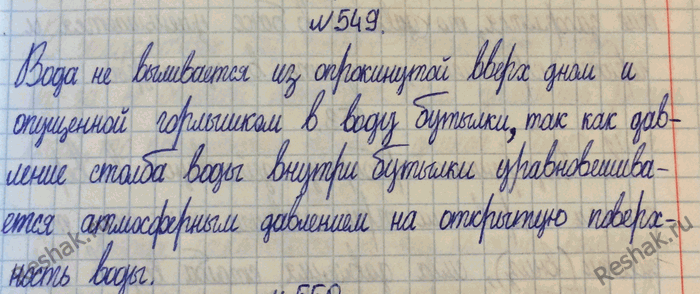 №549.
Вода не выливается из опрокинутой вверх дном и
опущенной горлышком в воду бутылки, так как дав-
ление столба воды внутри бутылки уравновешива-
ется атмосферным давлением на открытую поверх-
ность воды.
Reshak.ru
Reshak.ru